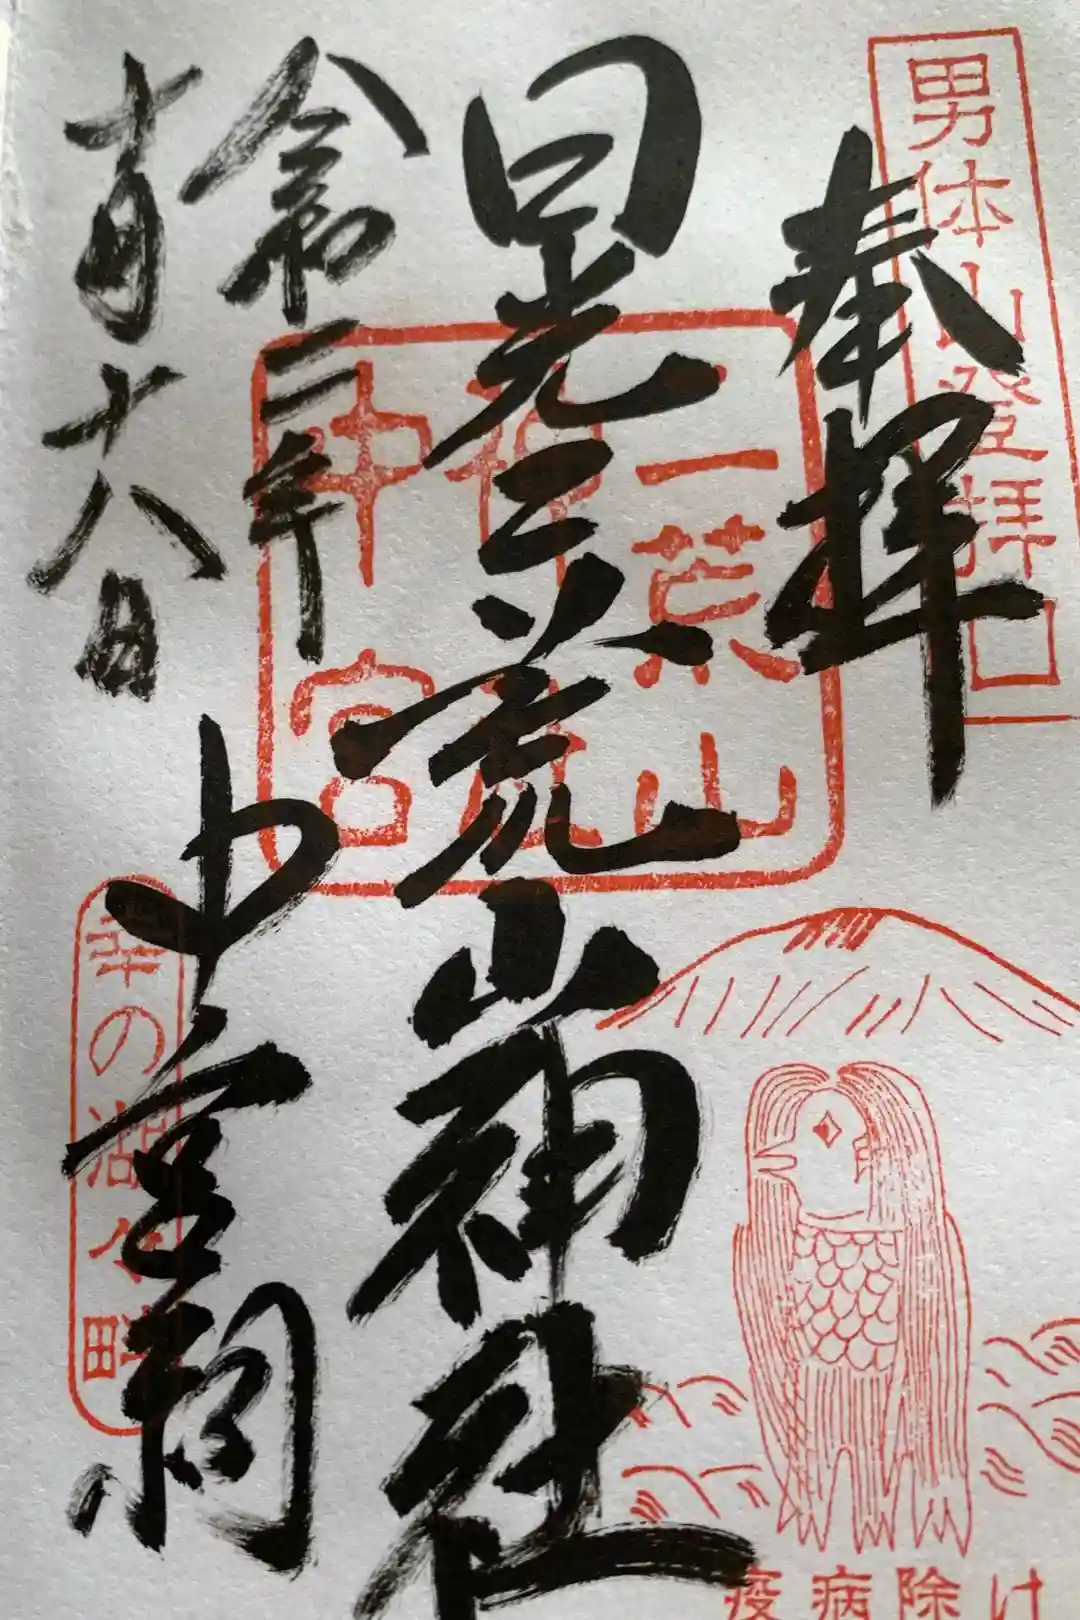 男体山登拝口
奉拝
日光二荒山神社
中宮祠
令和二年
十月十八日
二荒山
神社
中宮
幸の湖々畔
疫病除け